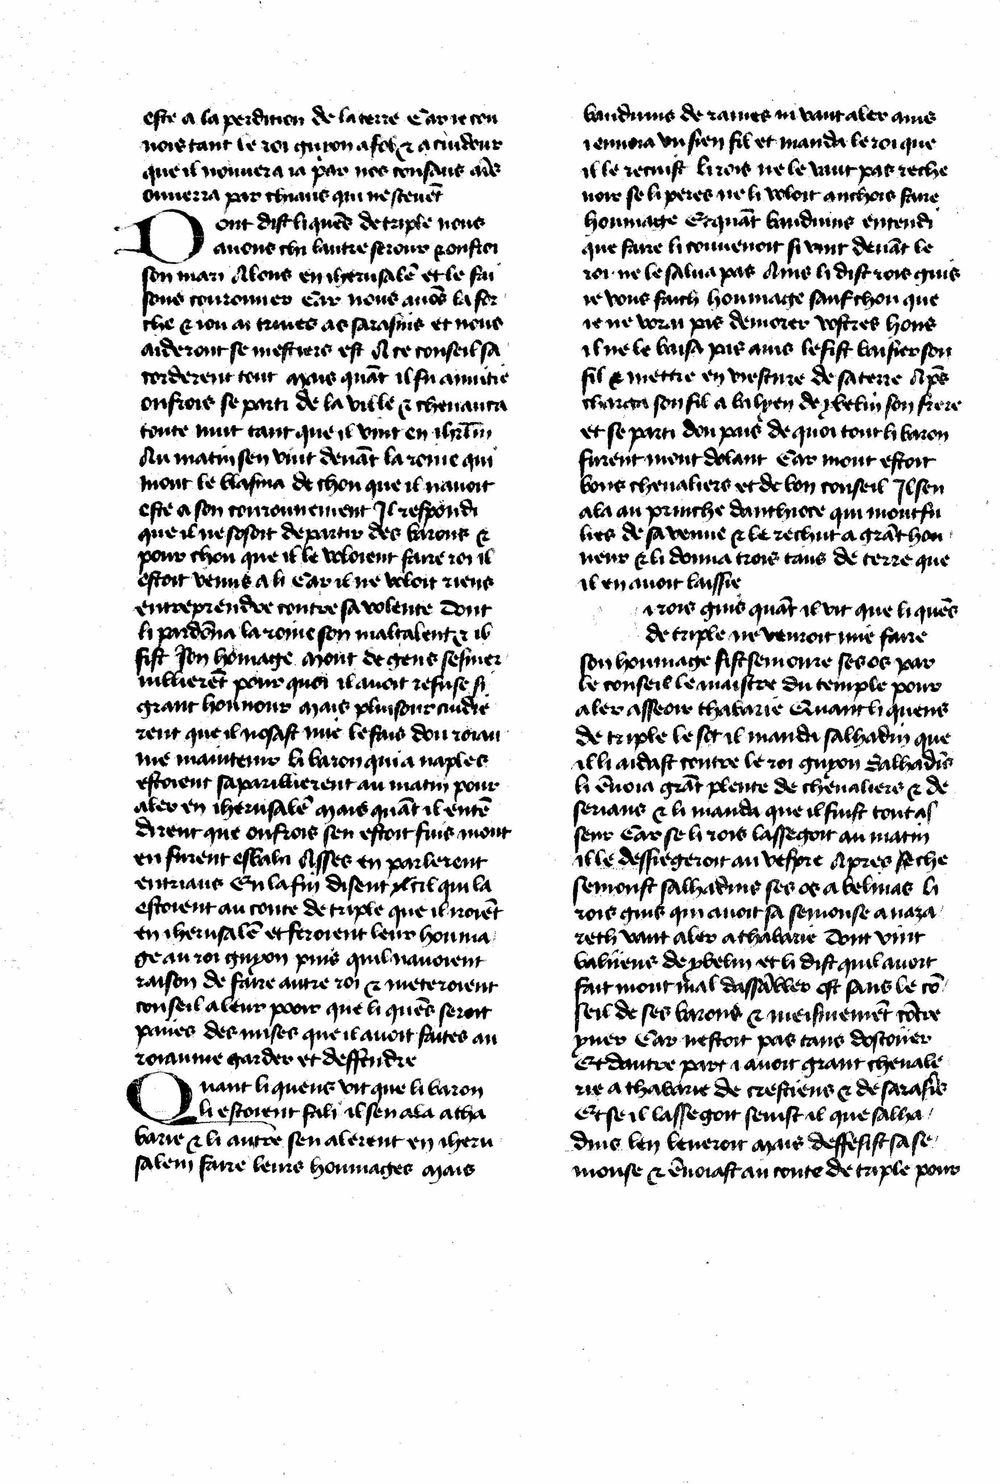 este a la perdition de la terre Car ie con
nois tant le roi guyon a fol & a cuideur
que il nouuera ia par nos consaus ains
ouuerra par chiaus qui ne sceuēt
Dont dist li quēs de triple nous
auons chi lautre serour & onfroi
son mari Alons en iherusalē et le fai
sons couronner Car nous auōs la for
che & iou ai triues as sarasins et nous
aideront se mestiers est A ce conseil sa
corderent tout Mais quāt il fu anuitie
onfrois se parti de la ville & cheuauca
toute nuit tant que il vint en ihrlm
Au matin sen vint deuāt la roine qui
mont le blasma de chou que il nauoit
este a son couronnement Il respondi
que il ne sosoit departir des barons &
pour chou que il le voloient faire roi il
estoit venus a li Car il ne voloit riens
entreprendre contre sa volente Dont
li pardōna la roine son maltalent & il
fist son homage Mont de gens sesmer
uillierēt pour quoi il auoit refuse si
grant honnour Mais pluisour cuidie
rent que il nosast mie le fais dou roiau
me maintenir li baron qui a naples
estoient sapareillierent au matin pour
aler en iherusalē Mais quāt il entē
dirent que onfrois sen estoit fuis mont
en furent esbahi Asses en parlerent
entriaus En la fin disent cil qui la
estoient au conte de triple que il iroiēt
en iherusalē et feroient leur homa
ge au roi guyon puis quil nauoient
raison de faire autre roi & meteroient
conseil a leur pooir que li quēs seroit
paiies des mises que il auoit faites au
roiaume garder et deffendre
Quant li quens vit que li baron
li estoient fali il sen ala a tha
barie & li autre sen alerent en iheru
salem faire leurs hommages Mais
bauduins de raines ni vaut aler ains
i enuoia vn sien fil et manda le roi que
il le recuist li rois ne le vaut pas reche
uoir se li peres ne li voloit anchois faire
hommage Et quāt bauduins entendi
que faire li conuenoit si vint deuāt le
roi ne le salua pas Ains li dist rois guis
ie vous faich hommage sauf chou que
ie ne vorai pas demorer vostres hons
il ne le baisa pas ains le fist baisier son
fil & mettre en viesture de sa terre Apēs
charga son fil a balyen de ybelin son frere
et se parti dou pais de quoi tout li baron
furent mont dolant Car mont estoit
bons cheualiers et de bon conseil Il sen
ala au prinche danthioce qui mont fu
lies de sa venue & le rechut a grāt hon
neur & li donna trois tans de terre que
il en auoit laissie
i rois guis quāt il vit que li quēs
de triple ne venroit mie faire
son hommage fist semonre ses os par
le conseil le maistre du temple pour
aler asseoir thabarie Quant li quens
de triple le set il manda salhadin que
il li aidast contre le roi guyon Salhadīs
li ēuoia grāt plente de cheualiers & de
serians & li manda que il fuist tout as
seur Car se li rois lassegoit au matin
il le dessiegeroit au vespre Apres che
semonst salhadins ses os a belinas li
rois guis qui auoit sa semonse a naza
reth vaut aler a thabarie Dont vint
baliiens de ybelin et li dist quil auoit
fait mont mal dassābler ost sans le cō
seil de ses barons & meismemēt cōtre
yuer Car nestoit pas tans dostoiier
Et dautre part i auoit grant cheuale
rie a thabarie de crestiens & de sarasīs
Et se il lassegoit seuist il que salha
dins len leueroit Mais deffesist sa se
monse & ēuoiast au conte de triple pour